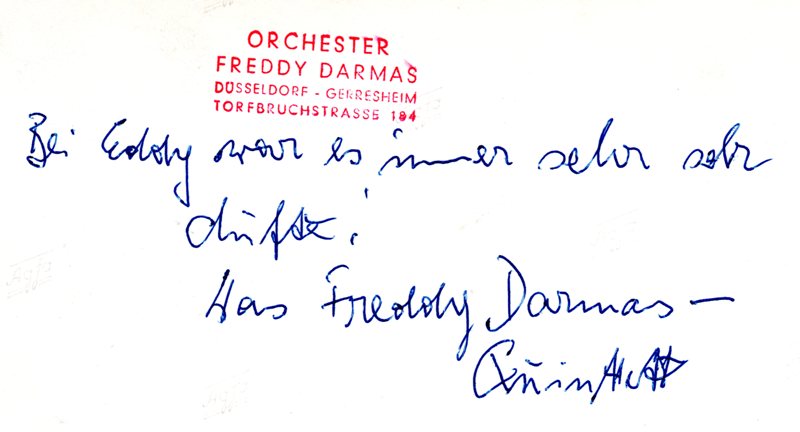 ORCHESTER
FREDDY DARMAS
DÜSSELDORF - GERRESHEIM
TORFBRUCHSTRASSE 184
Bei Eddy war es immer sehr sehr
dufte!
Das Freddy Darmas –
Quintett